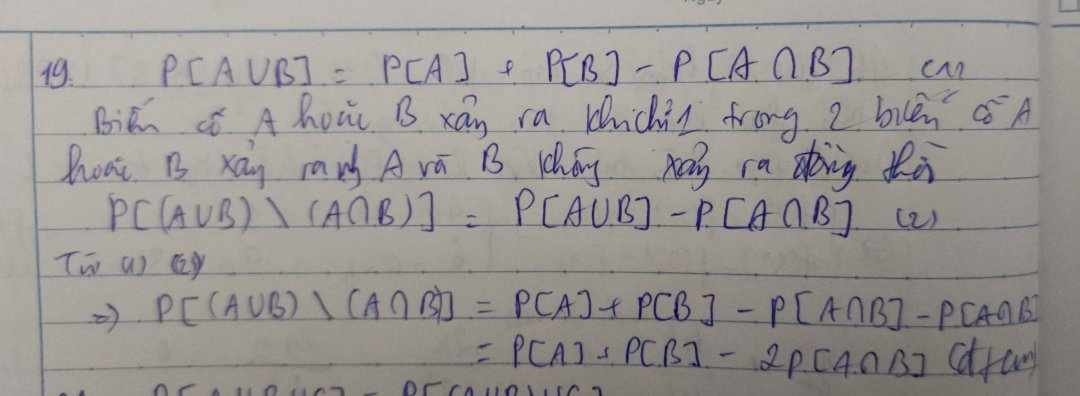 19. P[A∪B] = P[A] + P[B] - P[A∩B] (1)
Biến cố A hoặc B xảy ra khi chỉ 1 trong 2 biến cố A
hoặc B xảy ra A và B không xảy ra đồng thời
P[(A∪B) \ (A∩B)] = P[A∪B] - P[A∩B] (2)
Từ (1) (2)
=> P[(A∪B) \ (A∩B)] = P[A] + P[B] - P[A∩B] - P[A∩B]
= P[A] + P[B] - 2P[A∩B] (đpcm)